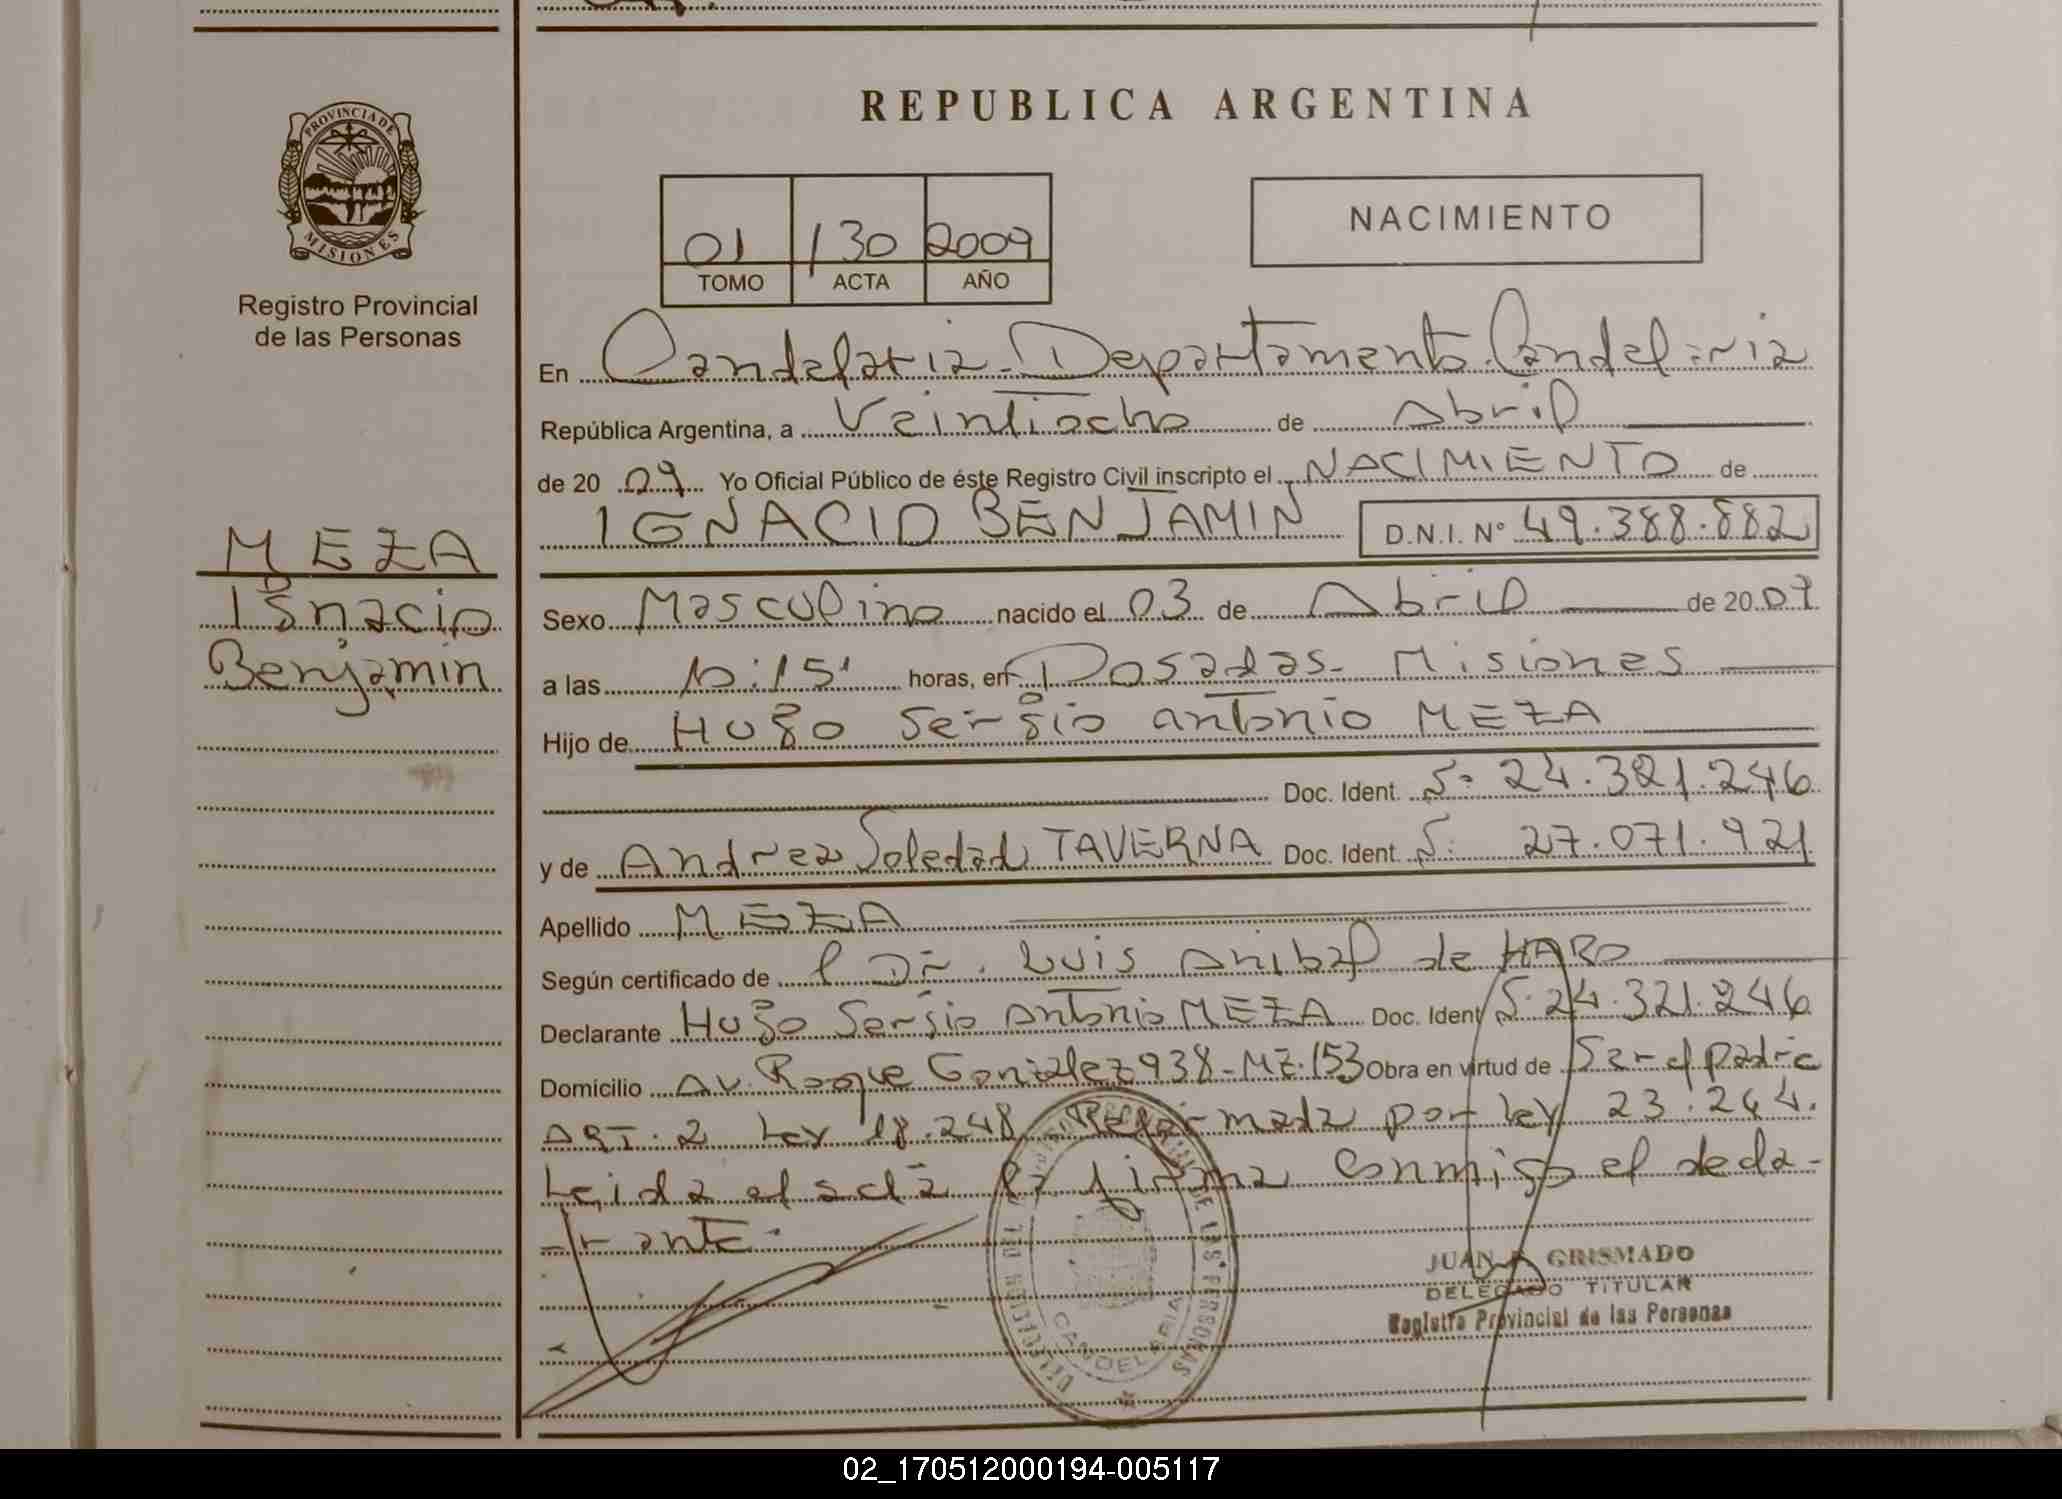 PROVINCIA DE
MISIONES
Registro Provincial
de las Personas
MEZA
Ignacio
Benjamin
REPUBLICA ARGENTINA
01 130 2009
TOMO ACTA AÑO
NACIMIENTO
En Candelaria - Departamento Candelaria
República Argentina, a Veintiocho de Abril
de 20 09 Yo Oficial Público de éste Registro Civil inscripto el NACIMIENTO de
IGNACIO BENJAMIN D.N.I. Nº 49.388.882
Sexo Masculino nacido el 03 de Abril de 20 09
a las 10:15' horas, en Posadas - Misiones
Hijo de Hugo Sergio Antonio MEZA
Doc. Ident. 24.321.246
y de Andrea Soledad TAVERNA Doc. Ident. 27.071.921
Apellido MEZA
Según certificado de l Dr. Luis Anibal de HARO
Declarante Hugo Sergio Antonio MEZA Doc. Ident 24.321.246
Domicilio AV. Roque Gonzalez 938 - MZ. 153 Obra en virtud de Ser el padre
ART. 2 Ley 18.248 Reformada por Ley 23.264.
Leida el acta la firma conmigo el decla-
-rante.
DELEGACION DEL REGISTRO PROVINCIAL DE LAS PERSONAS
CANDELARIA
JUAN GRISMADO
DELEGADO TITULAR
Registro Provincial de las Personas
02_170512000194-005117